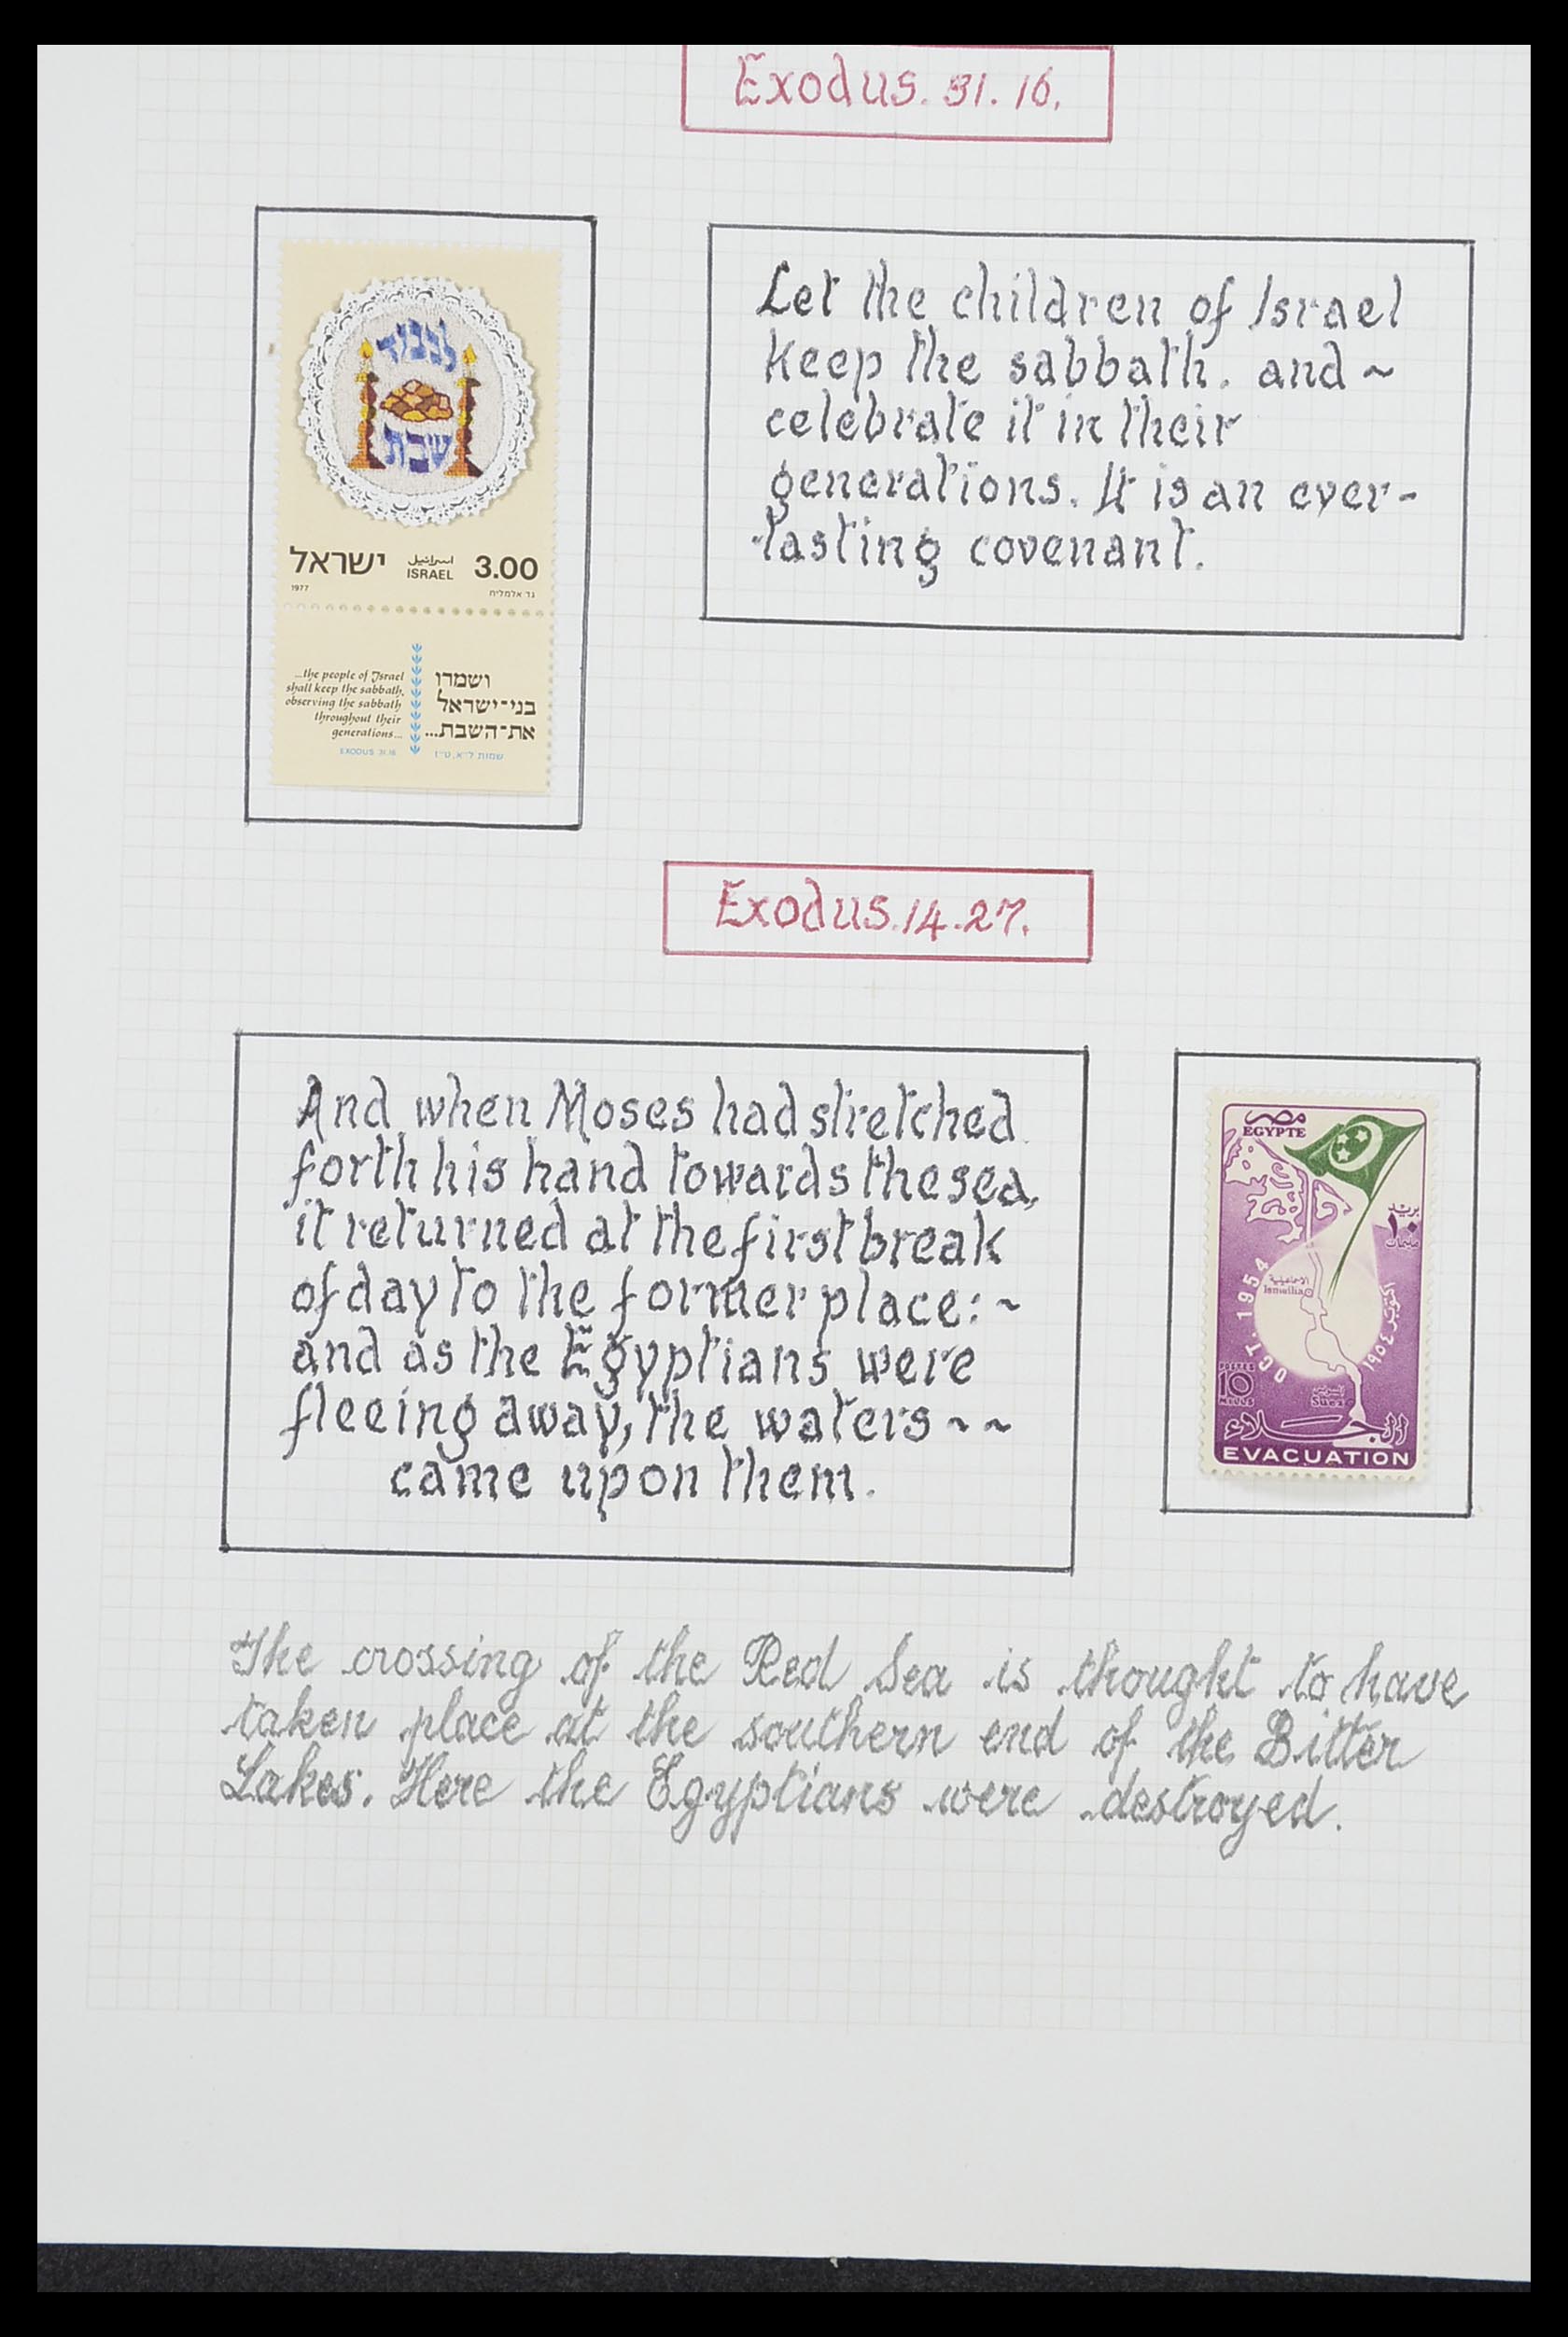 Exodus. 31. 16.
לכבוד
שבת
ישראל اسرائيل 3.00
ISRAEL
1977 גד אלמליח
...the people of Israel
shall keep the sabbath,
observing the sabbath
throughout their
generations...
EXODUS 31.16
ושמרו
בני־ישראל
את־השבת...
שמות ל״א, ט״ז
Let the children of Israel
keep the sabbath. and ~
celebrate it in their
generations. It is an ever-
-lasting covenant.
Exodus.14.27.
And when Moses had stretched
forth his hand towards the sea,
it returned at the first break
of day to the former place: ~
and as the Egyptians were
fleeing away, the waters ~ ~
came upon them.
مصر
EGYPTE
بريد
١٠
مليمات
الإسماعيلية
Ismailia
OCT. 1954
أكتوبر ١٩٥٤
POSTES
10
MILLS
السويس
Suez
الجلاء
EVACUATION
The crossing of the Red Sea is thought to have
taken place at the southern end of the Bitter
Lakes. Here the Egyptians were destroyed.